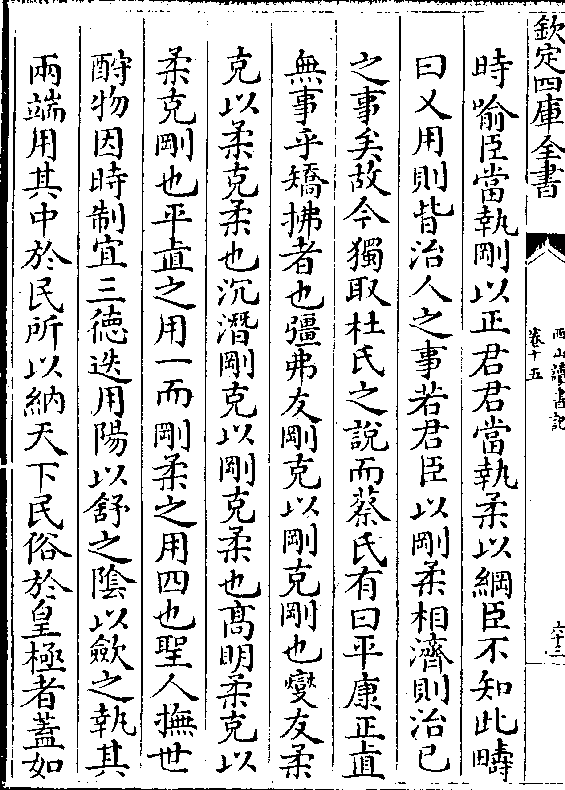 欽定四庫全書
西山讀書記
卷十五
六十三
時喻臣當執剛以正君君當執柔以綱臣不知此疇
曰乂用則皆治人之事若君臣以剛柔相濟則治已
之事矣故今獨取杜氏之說而蔡氏有曰平康正直
無事乎矯拂者也彊弗友剛克以剛克剛也燮友柔
克以柔克柔也沉潛剛克以剛克柔也髙明柔克以
柔克剛也平直之用一而剛柔之用四也聖人撫世
酧物因時制宜三德迭用陽以舒之隂以斂之執其
兩端用其中於民所以納天下民俗於皇極者蓋如